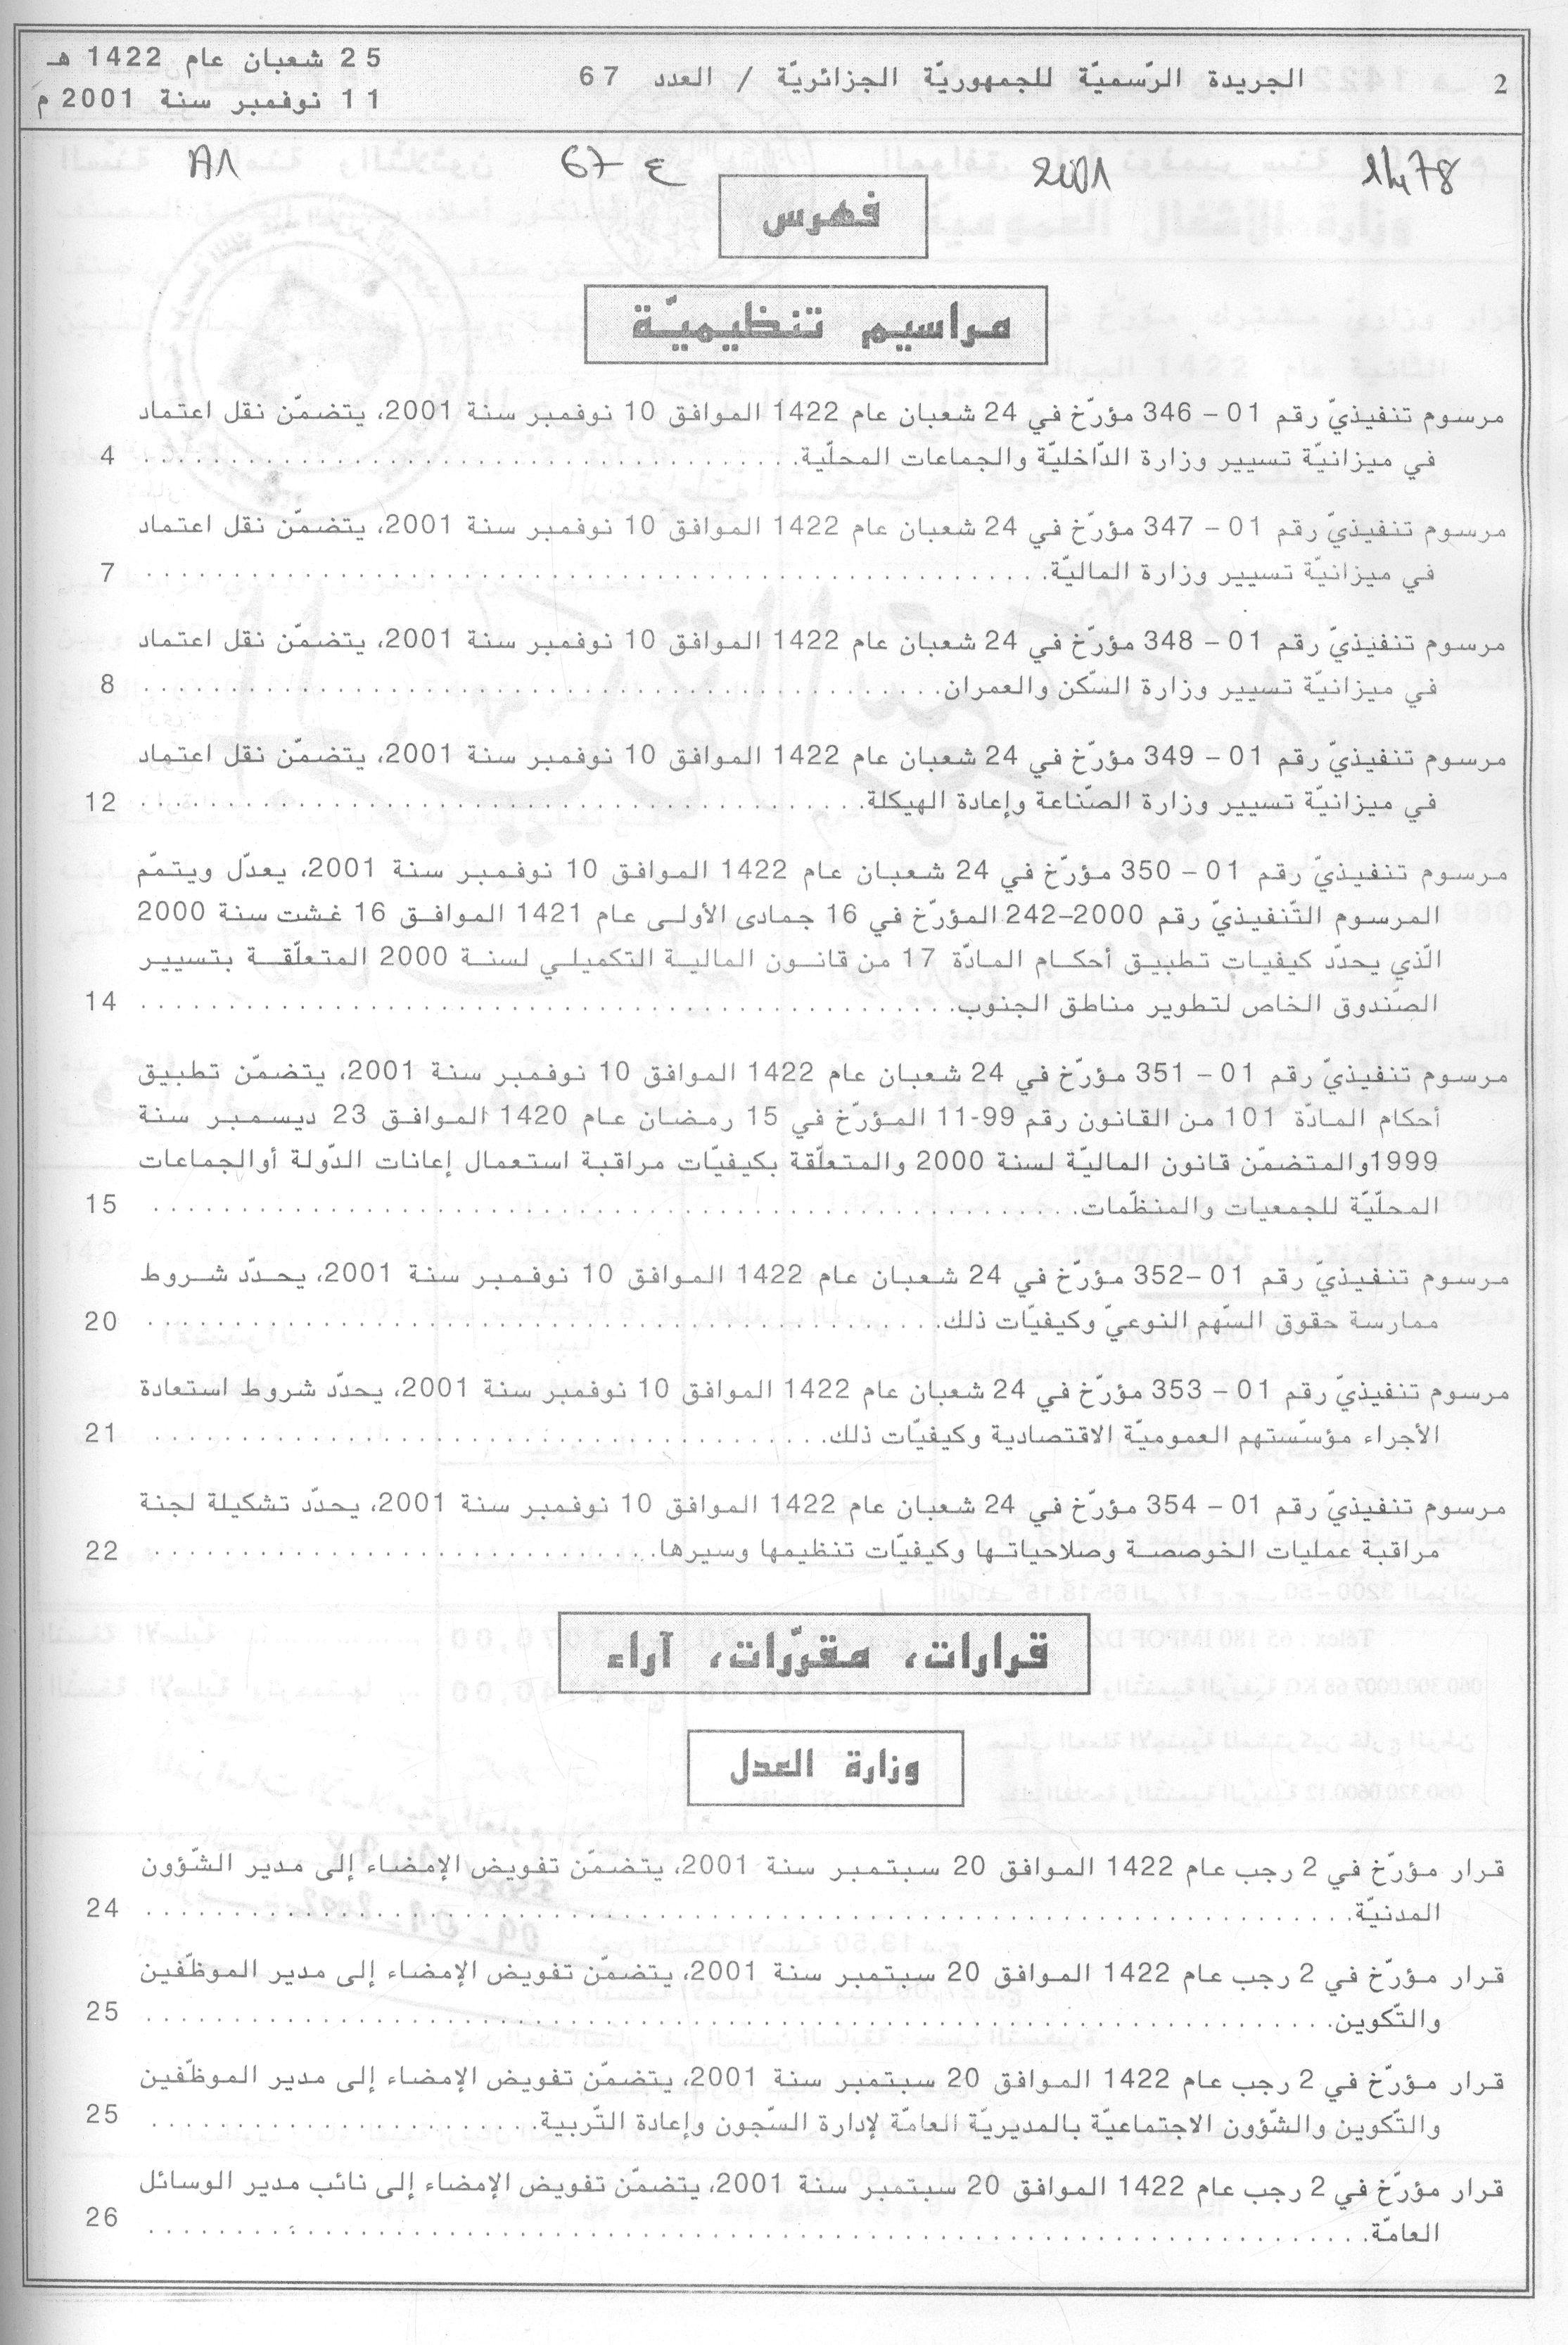 2 الجريدة الرّسميّة للجمهوريّة الجزائريّة / العدد 67
25 شعبان عام 1422 هـ
11 نوفمبر سنة 2001 م
2001 ع 67 A1
فهرس
مراسيم تنظيميّة
مرسوم تنفيذيّ رقم 01 – 346 مؤرّخ في 24 شعبان عام 1422 الموافق 10 نوفمبر سنة 2001، يتضمّن نقل اعتماد
في ميزانيّة تسيير وزارة الدّاخليّة والجماعات المحلّية. 4
مرسوم تنفيذيّ رقم 01 – 347 مؤرّخ في 24 شعبان عام 1422 الموافق 10 نوفمبر سنة 2001، يتضمّن نقل اعتماد
في ميزانيّة تسيير وزارة الماليّة. 7
مرسوم تنفيذيّ رقم 01 – 348 مؤرّخ في 24 شعبان عام 1422 الموافق 10 نوفمبر سنة 2001، يتضمّن نقل اعتماد
في ميزانيّة تسيير وزارة السّكن والعمران. 8
مرسوم تنفيذيّ رقم 01 – 349 مؤرّخ في 24 شعبان عام 1422 الموافق 10 نوفمبر سنة 2001، يتضمّن نقل اعتماد
في ميزانيّة تسيير وزارة الصّناعة وإعادة الهيكلة. 12
مرسوم تنفيذيّ رقم 01 – 350 مؤرّخ في 24 شعبان عام 1422 الموافق 10 نوفمبر سنة 2001، يعدّل ويتمّم
المرسوم التّنفيذيّ رقم 2000–242 المؤرّخ في 16 جمادى الأولى عام 1421 الموافق 16 غشت سنة 2000
الّذي يحدّد كيفيات تطبيق أحكام المادّة 17 من قانون المالية التكميلي لسنة 2000 المتعلّقة بتسيير
الصّندوق الخاص لتطوير مناطق الجنوب. 14
مرسوم تنفيذيّ رقم 01 – 351 مؤرّخ في 24 شعبان عام 1422 الموافق 10 نوفمبر سنة 2001، يتضمّن تطبيق
أحكام المادّة 101 من القانون رقم 99-11 المؤرّخ في 15 رمضان عام 1420 الموافق 23 ديسمبر سنة
1999والمتضمّن قانون الماليّة لسنة 2000 والمتعلّقة بكيفيّات مراقبة استعمال إعانات الدّولة أوالجماعات
المحلّيّة للجمعيات والمنظّمات. 15
مرسوم تنفيذيّ رقم 01 –352 مؤرّخ في 24 شعبان عام 1422 الموافق 10 نوفمبر سنة 2001، يحدّد شروط
ممارسة حقوق السّهم النوعيّ وكيفيّات ذلك. 20
مرسوم تنفيذيّ رقم 01 – 353 مؤرّخ في 24 شعبان عام 1422 الموافق 10 نوفمبر سنة 2001، يحدّد شروط استعادة
الأجراء مؤسّستهم العموميّة الاقتصادية وكيفيّات ذلك. 21
مرسوم تنفيذيّ رقم 01 – 354 مؤرّخ في 24 شعبان عام 1422 الموافق 10 نوفمبر سنة 2001، يحدّد تشكيلة لجنة
مراقبة عمليات الخوصصة وصلاحياتها وكيفيّات تنظيمها وسيرها. 22
قرارات، مقرّرات، آراء
وزارة العدل
قرار مؤرّخ في 2 رجب عام 1422 الموافق 20 سبتمبر سنة 2001، يتضمّن تفويض الإمضاء إلى مدير الشّؤون
المدنيّة. 24
قرار مؤرّخ في 2 رجب عام 1422 الموافق 20 سبتمبر سنة 2001، يتضمّن تفويض الإمضاء إلى مدير الموظّفين
والتّكوين. 25
قرار مؤرّخ في 2 رجب عام 1422 الموافق 20 سبتمبر سنة 2001، يتضمّن تفويض الإمضاء إلى مدير الموظّفين
والتّكوين والشّؤون الاجتماعيّة بالمديريّة العامّة لإدارة السّجون وإعادة التّربية. 25
قرار مؤرّخ في 2 رجب عام 1422 الموافق 20 سبتمبر سنة 2001، يتضمّن تفويض الإمضاء إلى نائب مدير الوسائل
العامّة. 26